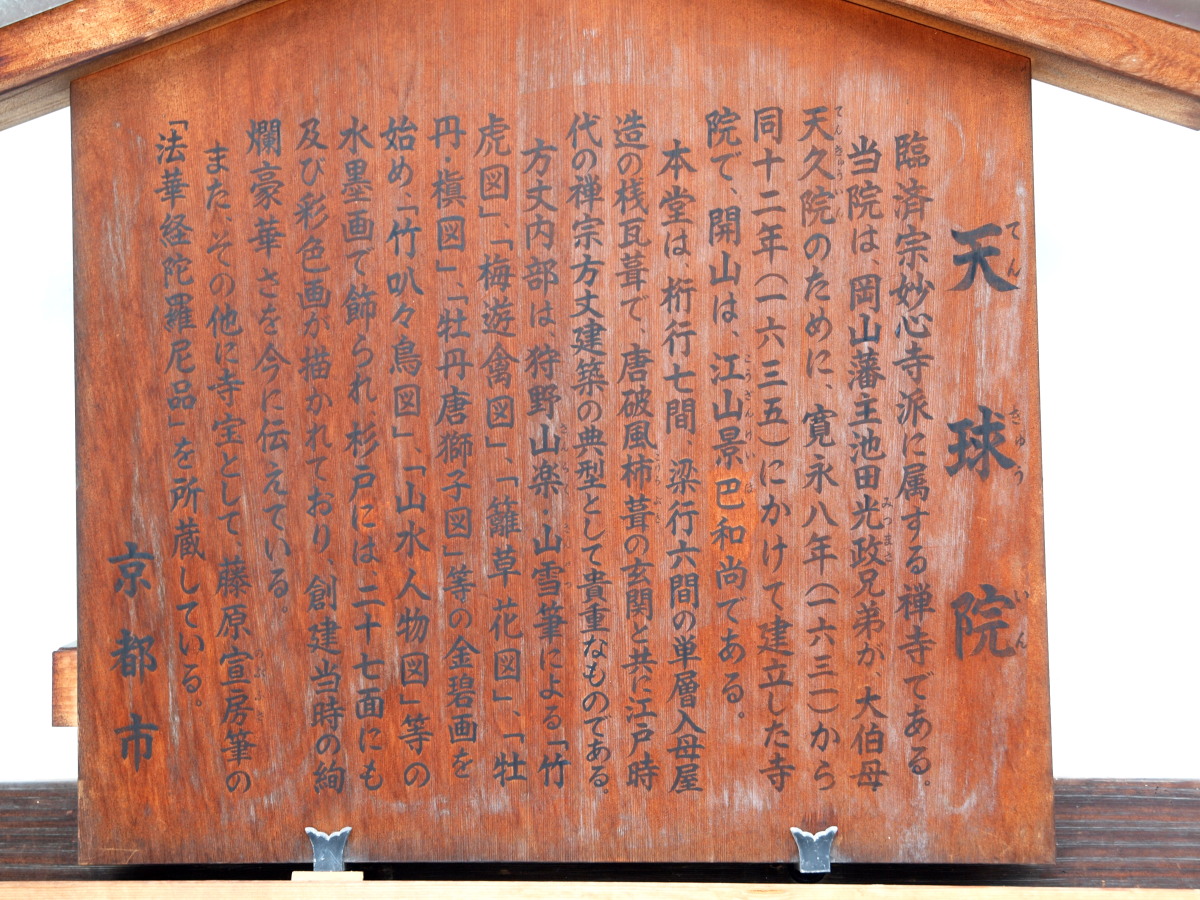 天球院
てんきゅういん
臨済宗妙心寺派に属する禅寺である。
当院は、岡山藩主池田光政兄弟が、大伯母
みつまさ
天久院のために、寛永八年(一六三一)から
てんきゅういん
同十二年(一六三五)にかけて建立した寺
院で、開山は、江山景巴和尚である。
こうざんけいは
本堂は、桁行七間、梁行六間の単層入母屋
造の桟瓦葺で、唐破風柿葺の玄関と共に江戸時
こけらぶき
代の禅宗方丈建築の典型として貴重なものである。
方丈内部は、狩野山楽・山雪筆による「竹
さんらく
さんせつ
虎図」、「梅遊禽図」、「籬草花図」、「牡
丹・槇図」、「牡丹唐獅子図」等の金碧画を
始め、「竹叭々鳥図」、「山水人物図」等の
水墨画で飾られ、杉戸には二十七面にも
及び彩色画が描かれており、創建当時の絢
爛豪華さを今に伝えている。
また、その他に寺宝として、藤原宣房筆の
のぶふさ
「法華経陀羅尼品」を所蔵している。
京都市